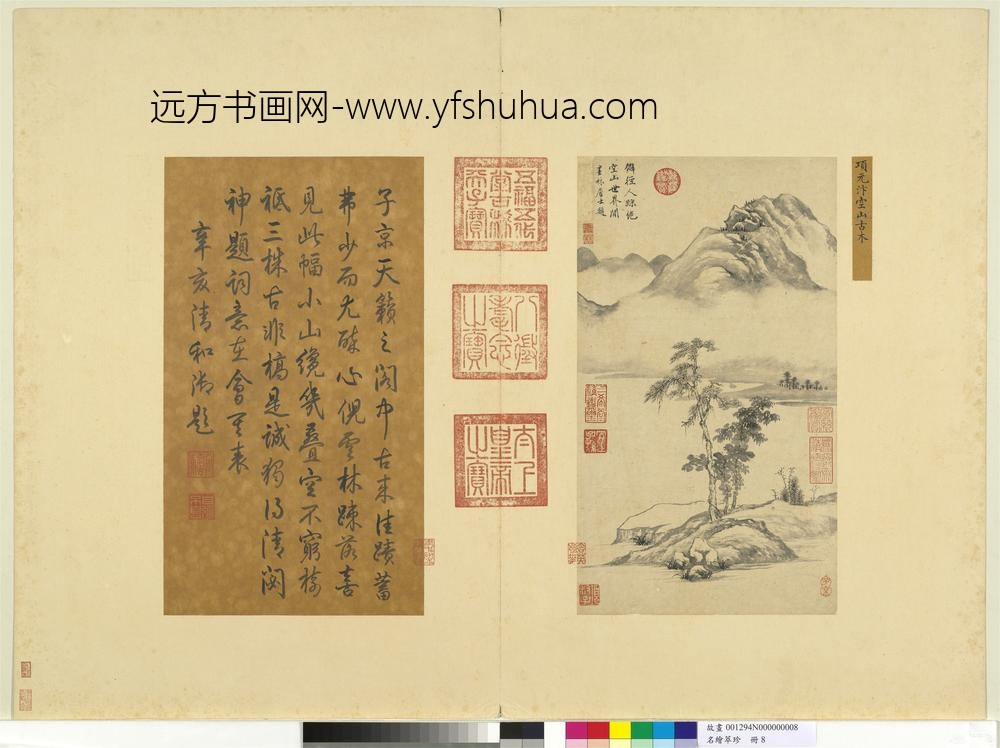 远方书画网-www.yfshuhua.com
項元汴空山古木
僻徑人踪絕
空山世界閒
墨林居士題
五福五代
堂古稀
天子寶
八徵
耄念
之寶
太上
皇帝
之寶
子京天籟之閣中古來佳蹟蓄
弗少而尤醉心倪雲林踈落喜
見此幅小山纔幾疊空不窮樹
祗三株古非槁是誠獨得清閟
神題詞意在會其表
辛亥清和御題
故畫 001294N000000008
名繪萃珍 冊 8